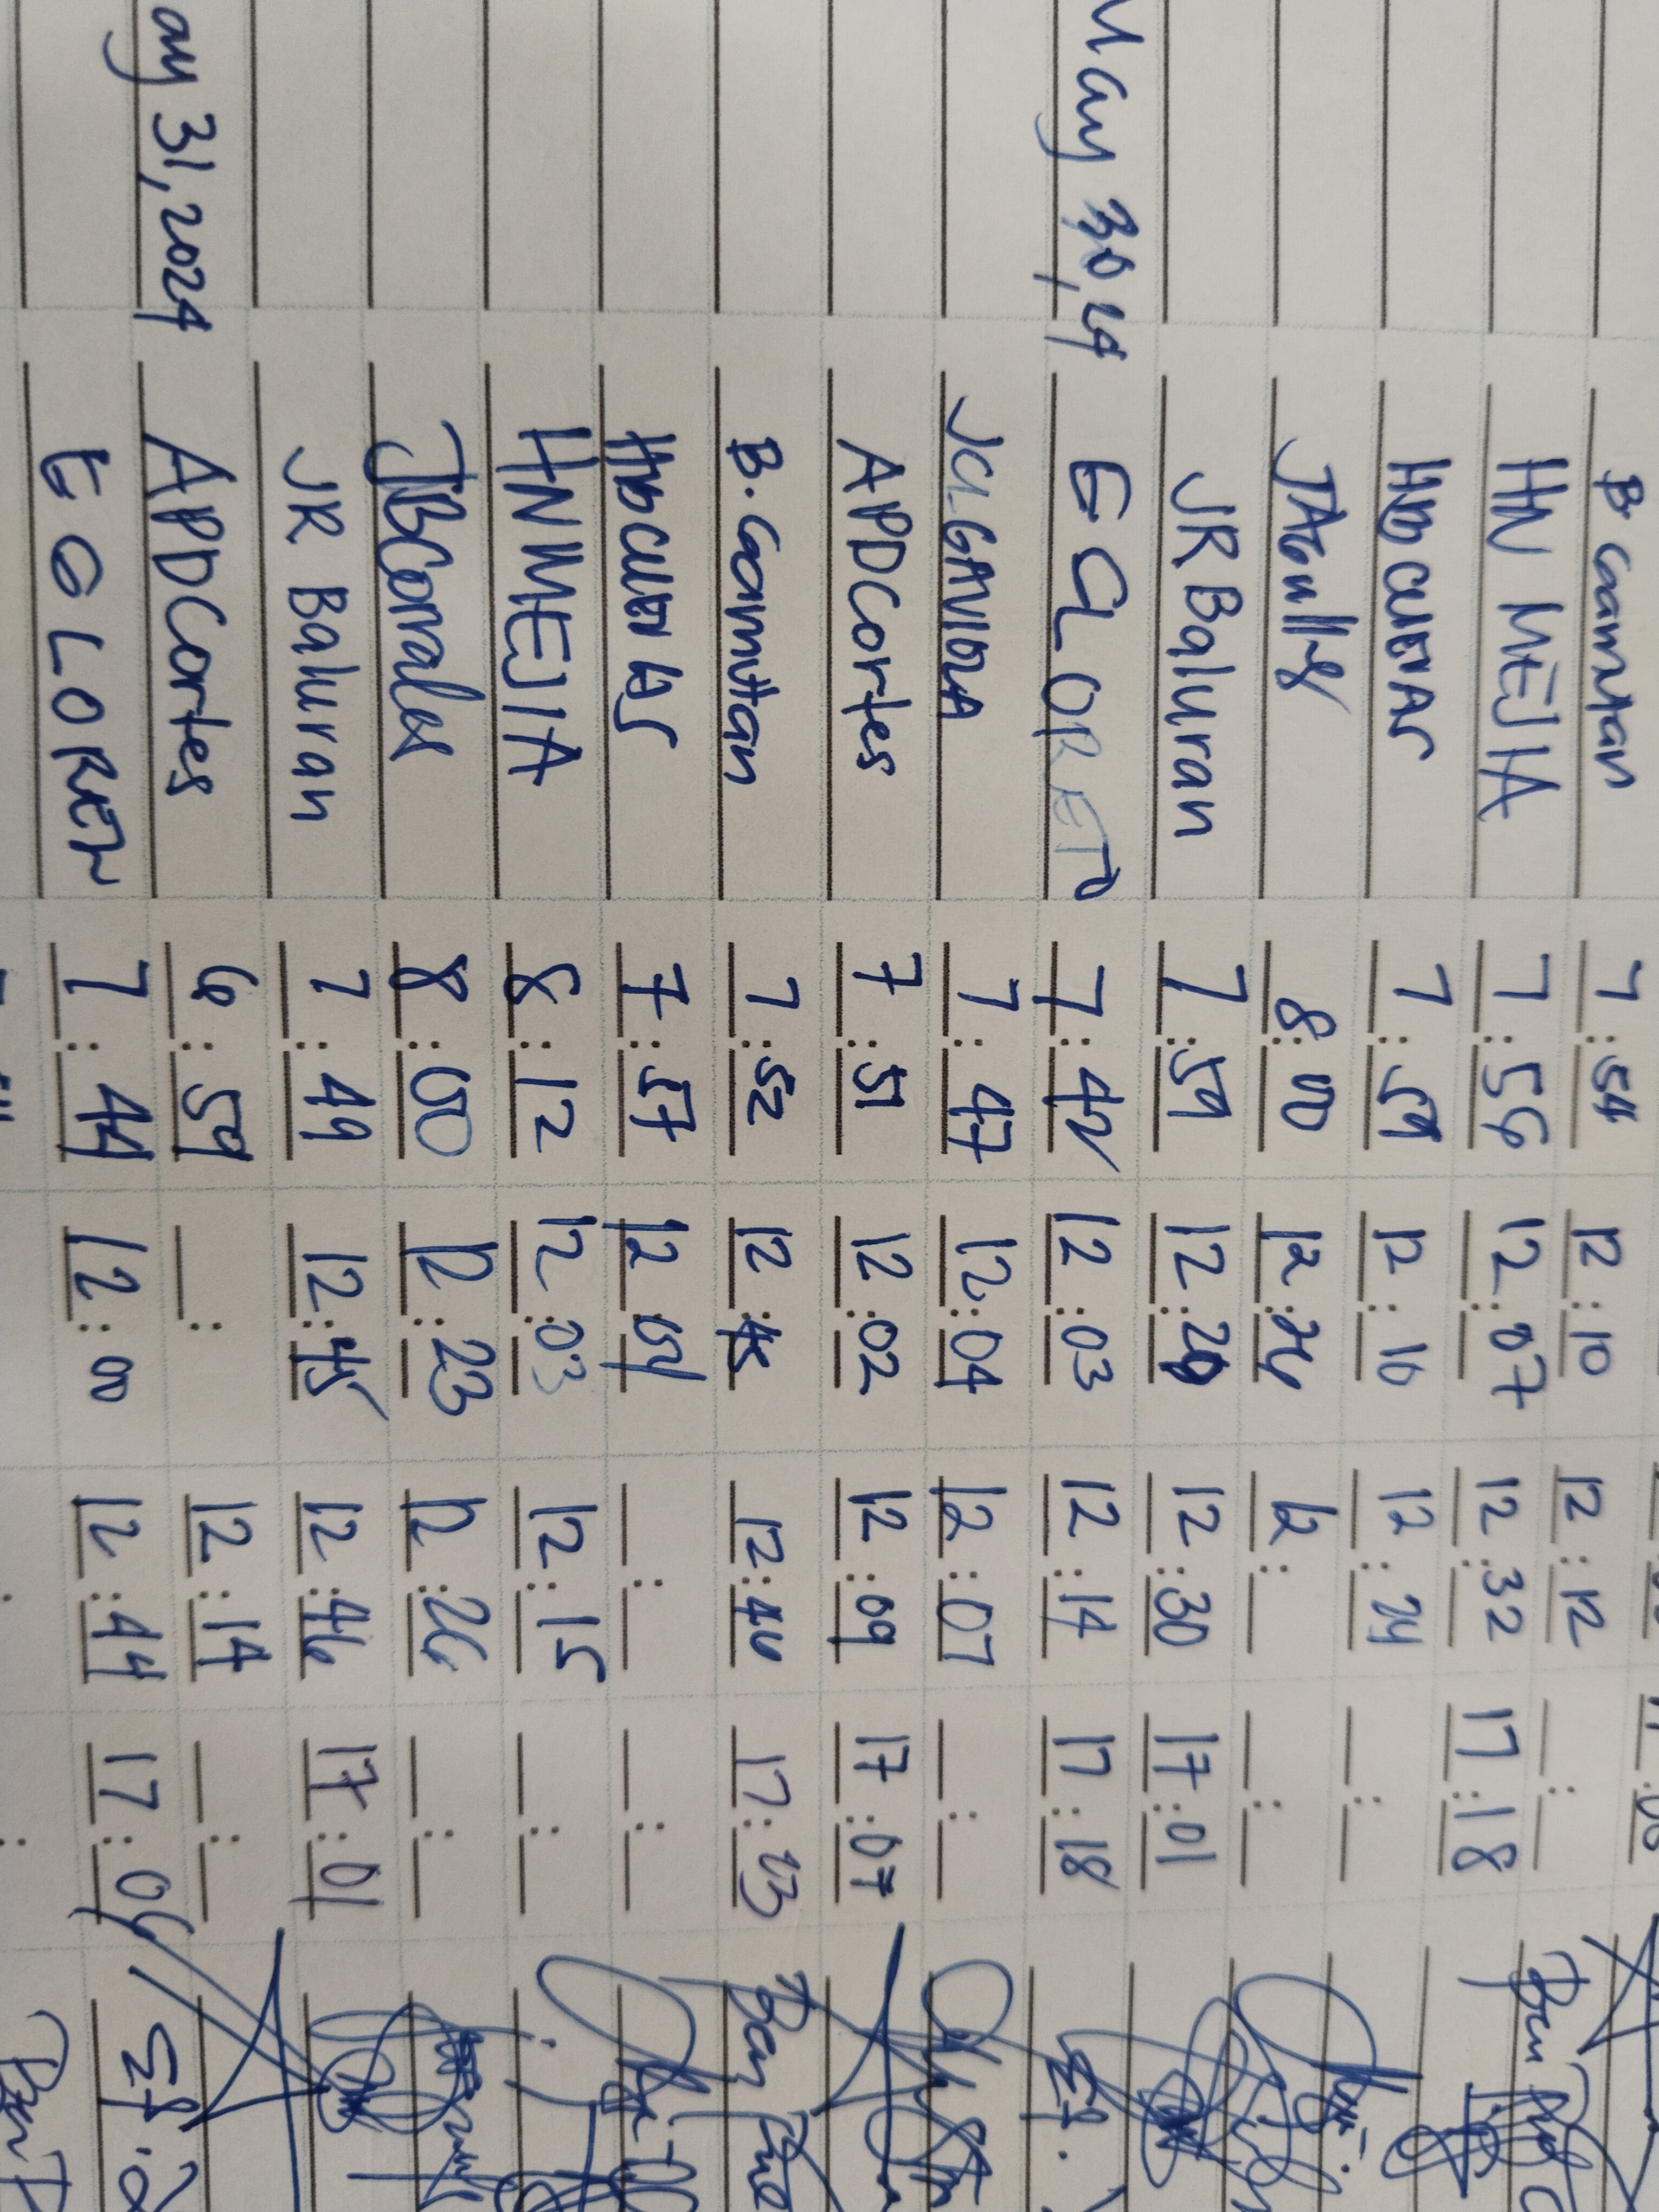 B. Caanutan 7:54 12:10 12:12
HN MEJIA 7:56 12:07 12:32 17:18
HDD CUEVAS 7:59 12:16 12:24
8:00 12:26 12:
JR Baluran 7:59 12:29 12:30 17:01
May 30, 24 EGLORETO 7:42 12:03 12:14 17:18
JCLGAVIOLA 7:47 12:04 12:07
APDCortes 7:51 12:02 12:09 17:07
B. Caanutan 7:52 12:45 12:46 17:03
HDD CUEVAS 7:57 12:04
HNMEJIA 8:12 12:03 12:15
JBCorrales 8:00 12:23 12:26
JR Baluran 7:49 12:45 12:46 17:01
ay 31, 2024 APDCortes 6:59 12:14
EGLORETO 7:44 12:00 12:44 17:04